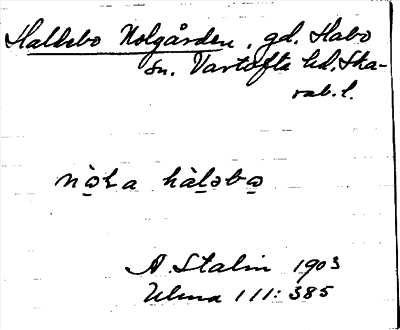 Hallebo Nolgården, gd. Habo
sn. Vartofta hd, Ska-
rab. l.
hàləbo̲
A. Stalin 1903
Ulma 111: 385